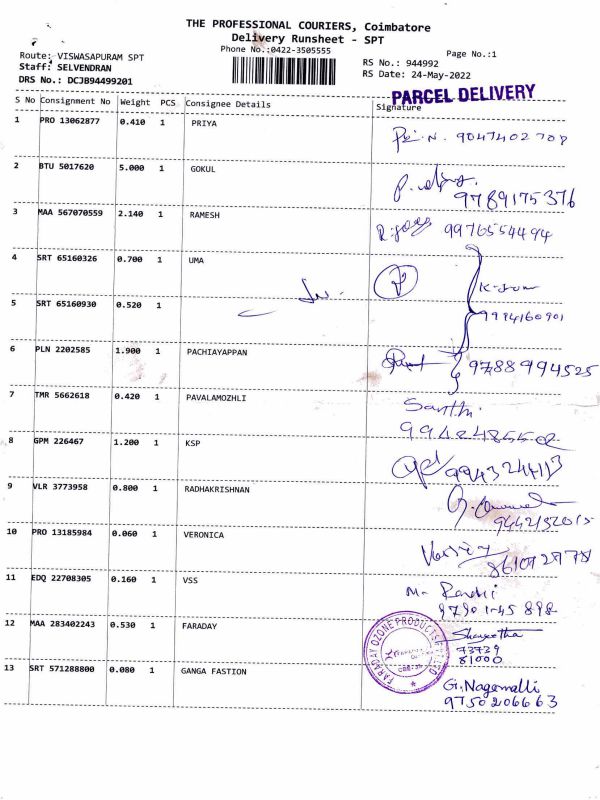 THE PROFESSIONAL COURIERS, Coimbatore
Delivery Runsheet - SPT
Phone No.:0422-3505555
Page No.:1
Route: VISWASAPURAM SPT
RS No.: 944992
Staff: SELVENDRAN
RS Date: 24-May-2022
DRS No.: DCJB94499201
PARCEL DELIVERY
S No Consignment No Weight PCS Consignee Details Signature
1 PRO 13062877 0.410 1 PRIYA
9047402708
2 BTU 5017620 5.000 1 GOKUL
9789175376
3 MAA 567070559 2.140 1 RAMESH
9976554494
4 SRT 65160326 0.700 1 UMA
5 SRT 65160930 0.520 1
9994160901
6 PLN 2202585 1.900 1 PACHIAYAPPAN
9788994525
7 TMR 5662618 0.420 1 PAVALAMOZHLI
Santhi
8 GPM 226467 1.200 1 KSP
9 VLR 3773958 0.800 1 RADHAKRISHNAN
9442152015
10 PRO 13185984 0.060 1 VERONICA
11 EDQ 22708305 0.160 1 VSS
12 MAA 283402243 0.530 1 FARADAY
FARADAY OZONE PRODUCTS
73739
81000
13 SRT 571288800 0.080 1 GANGA FASTION
G. Nagamalli
9750206663